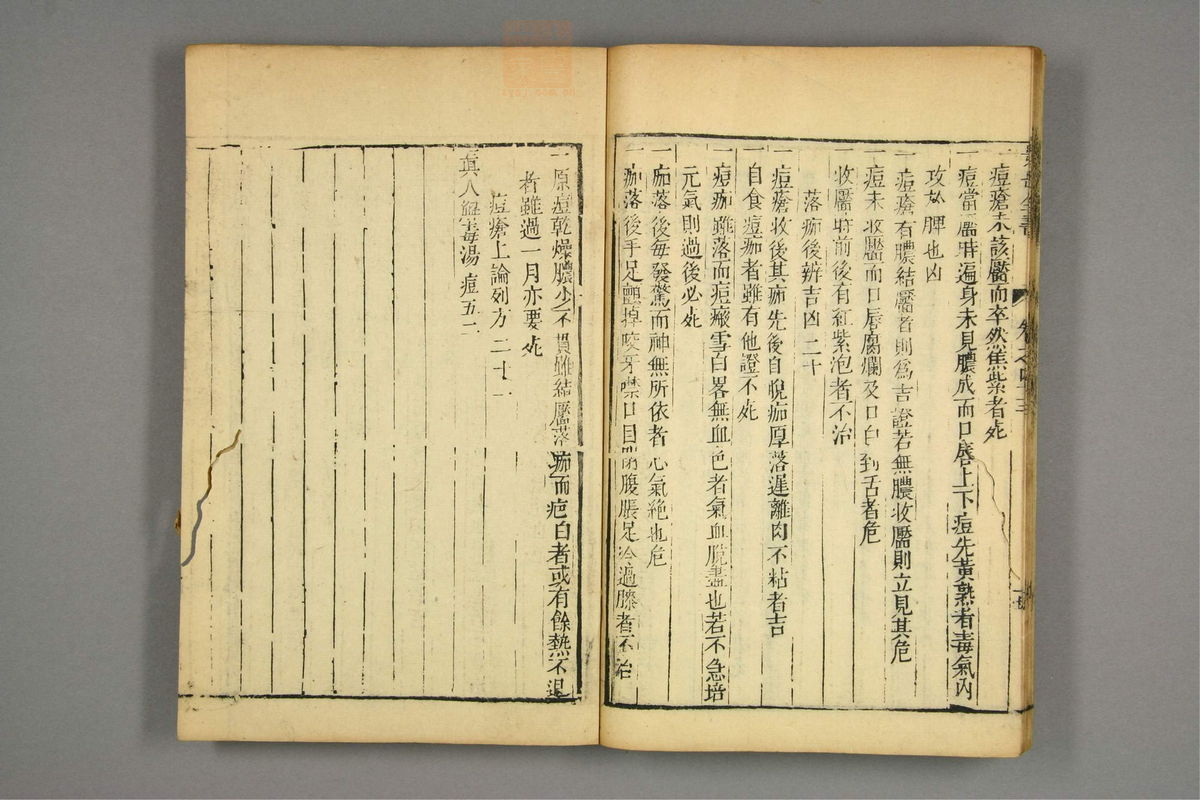 一痘瘡未該靨而卒然焦紫者死
一痘當靨時遍身未見膿成而口唇上下痘先黃熟者毒氣內
攻於脾也凶
一痘瘡有膿結靨者則為吉證若無膿收靨則立見其危
一痘未收靨而口唇腐爛及口白到舌者危
一收靨時前後有紅紫泡者不治
落痂後辨吉凶二十
一痘瘡收後其痂先後自脫痂厚落遲離肉不粘者吉
一自食痘痂者雖有他證不死
一痘痂雖落而痘瘢雪白畧無血色者氣血脫盡也若不急培
元氣則過後必死
一痂落後每發驚而神無所依者心氣絕也危
一痂落後手足顫掉咬牙噤口目閉腹脹足冷過膝者不治
一原痘乾燥膿少不貫雖結靨落痂而疤白者或有餘熱不退
者雖過一月亦要死
痘瘡上論列方二十一
真人解毒湯 痘五二